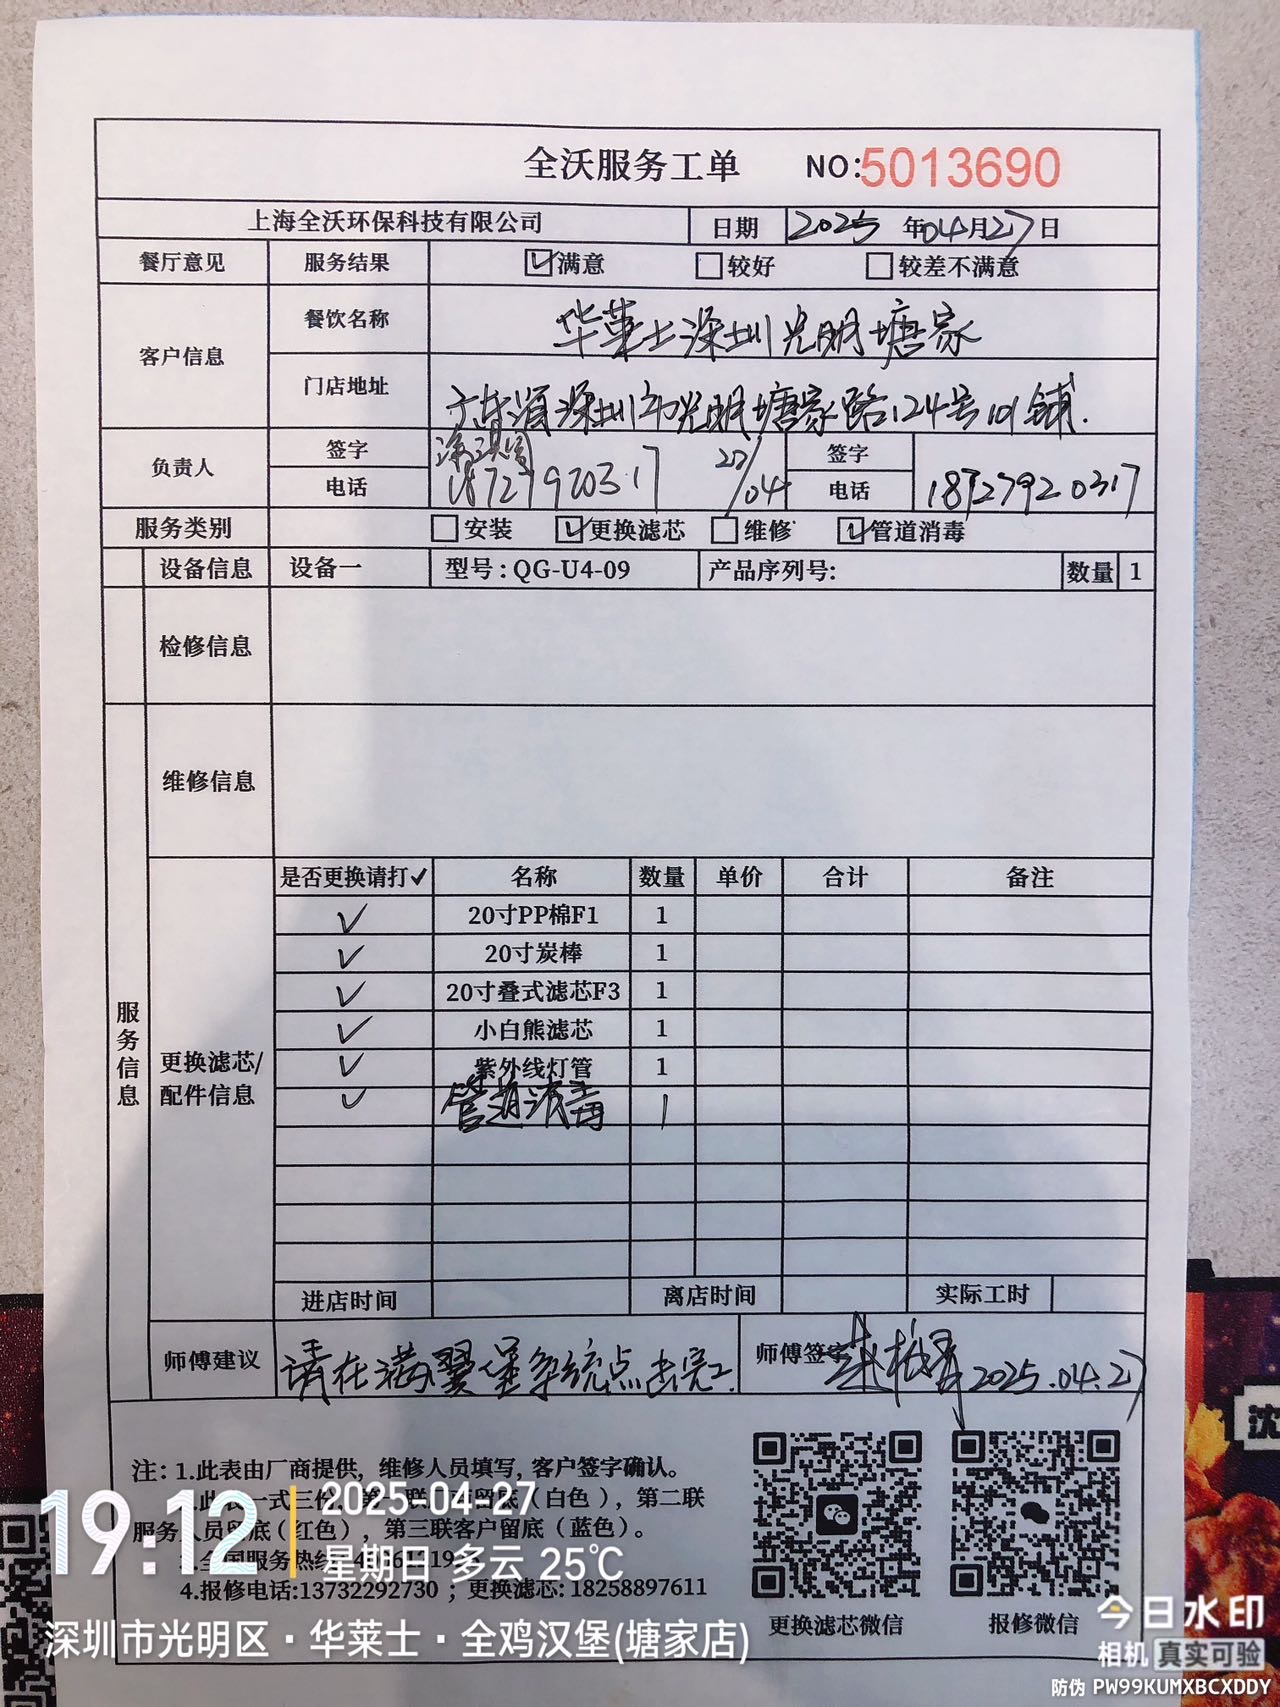 全沃服务工单 NO:5013690
上海全沃环保科技有限公司 日期 2025年04月27日
餐厅意见 服务结果 ☑满意 ☐较好 ☐较差不满意
客户信息 餐饮名称 华莱士深圳光明塘家
门店地址 广东省深圳市光明塘家路124号101铺.
负责人 签字 27/04 签字
电话 18727920317 电话 18727920317
服务类别 ☐安装 ☑更换滤芯 ☐维修 ☑管道消毒
设备信息 设备一 型号:QG-U4-09 产品序列号: 数量 1
检修信息
维修信息
服务信息
更换滤芯/配件信息
是否更换请打✓ 名称 数量 单价 合计 备注
✓ 20寸PP棉F1 1
✓ 20寸炭棒 1
✓ 20寸叠式滤芯F3 1
✓ 小白熊滤芯 1
✓ 紫外线灯管 1
✓ 管道消毒 1
进店时间 离店时间 实际工时
师傅建议 请在满翼堡系统点击完工. 师傅签字 2025.04.27
注:1.此表由厂商提供,维修人员填写,客户签字确认。
(白色),第二联
服务人员留底(红色),第三联客户留底(蓝色)。
全国服务热线
4.报修电话:13732292730;更换滤芯:18258897611
更换滤芯微信 报修微信
19:12 2025-04-27
星期日 多云 25℃
深圳市光明区·华莱士·全鸡汉堡(塘家店)
今日水印
相机 真实可验
防伪 PW99KUMXBCXDDY
沈